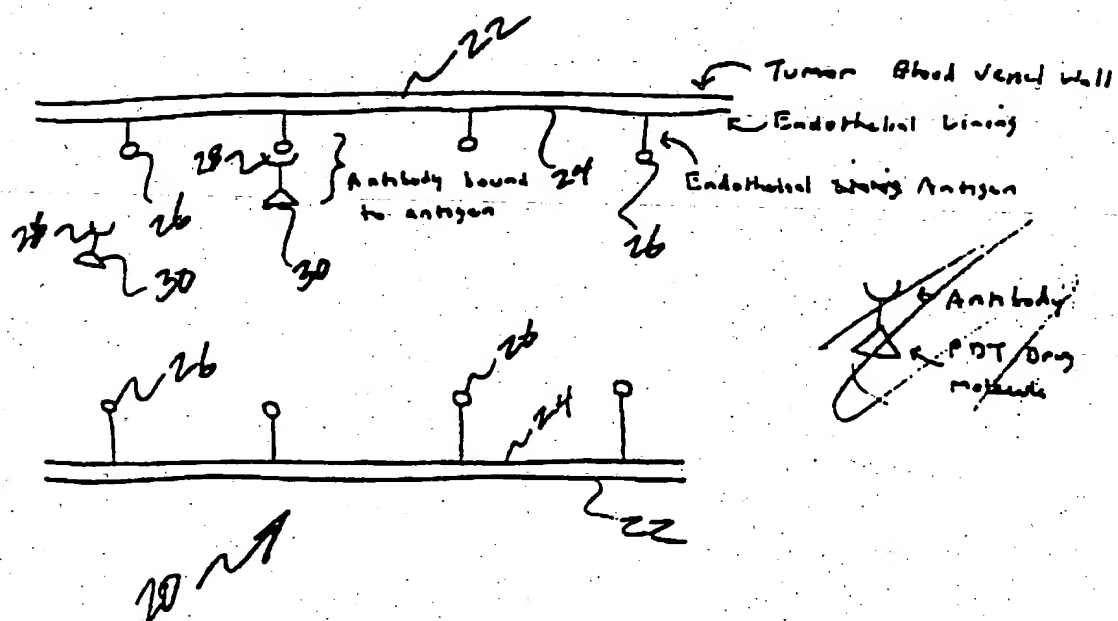 22
Tumor Blood Vessel Wall
Endothelial Lining
28
Antibody bound
to antigen
24
Endothelial Lining Antigen
28
26
30
30
26
Antibody
PDT Drug
molecule
26
26
24
22
20